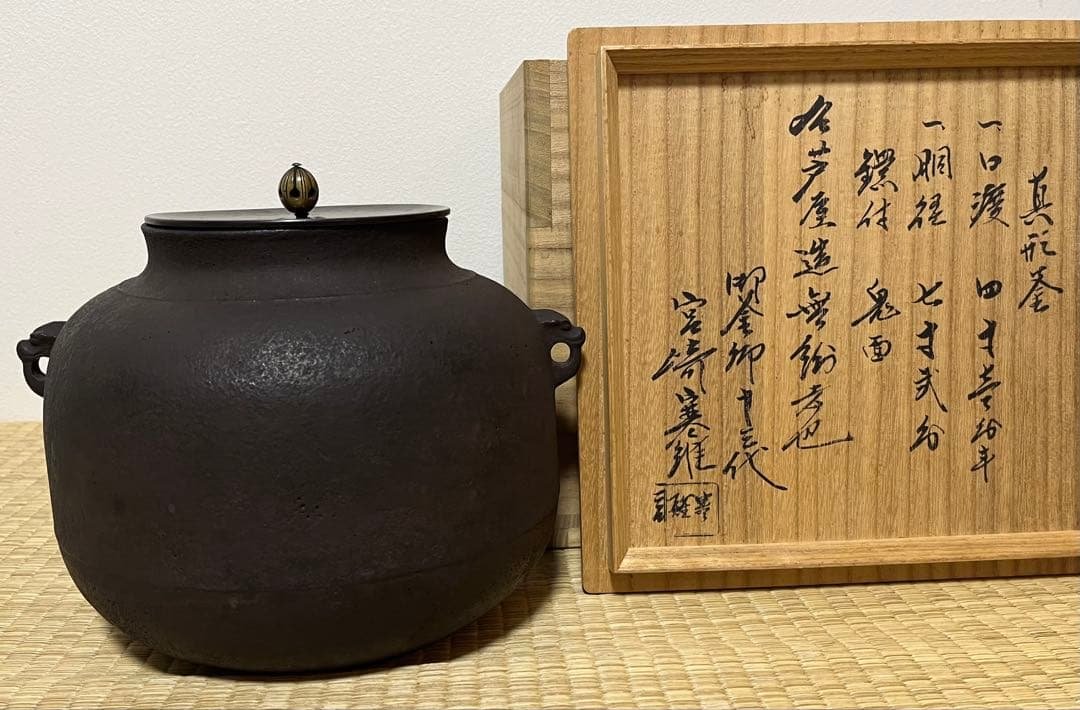 真形釜
一 口渡 四寸壱分半
一 胴径 七寸弐分
鐶付 鬼面
右芦屋造無紛者也
御釜師 十三代
宮﨑寒雉